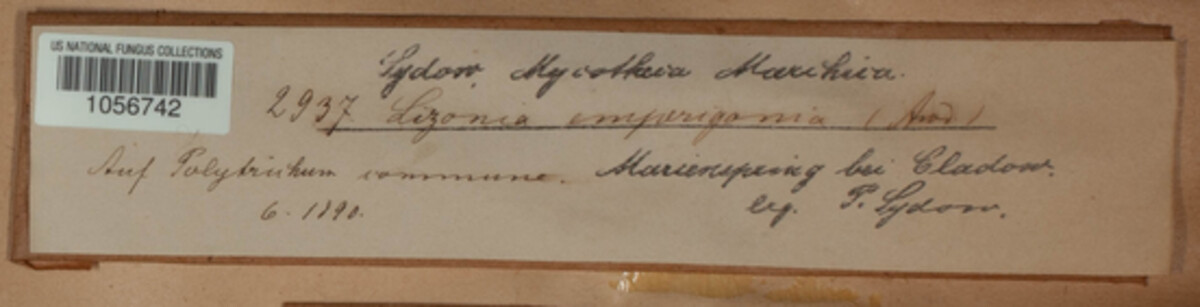 US NATIONAL FUNGUS COLLECTIONS
1056742
Sydow, Mycotheca Marchica.
2937. Lizonia emperigonia (Awd)
Auf Polytrichum commune. Marienspring bei Cladow.
6. 1890. leg. P. Sydow.